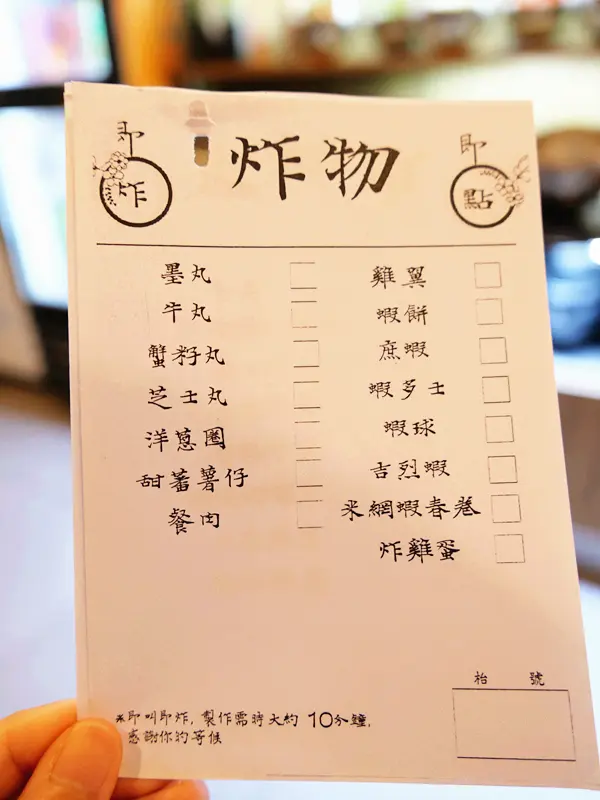 即炸
炸物
即點
墨丸
牛丸
蟹籽丸
芝士丸
洋蔥圈
甜蕃薯仔
餐肉
雞翼
蝦餅
庶蝦
蝦多士
蝦球
吉烈蝦
米網蝦春卷
炸雞蛋
枱 號
*即叫即炸, 製作需時大約 10分鐘,
感謝你的等候